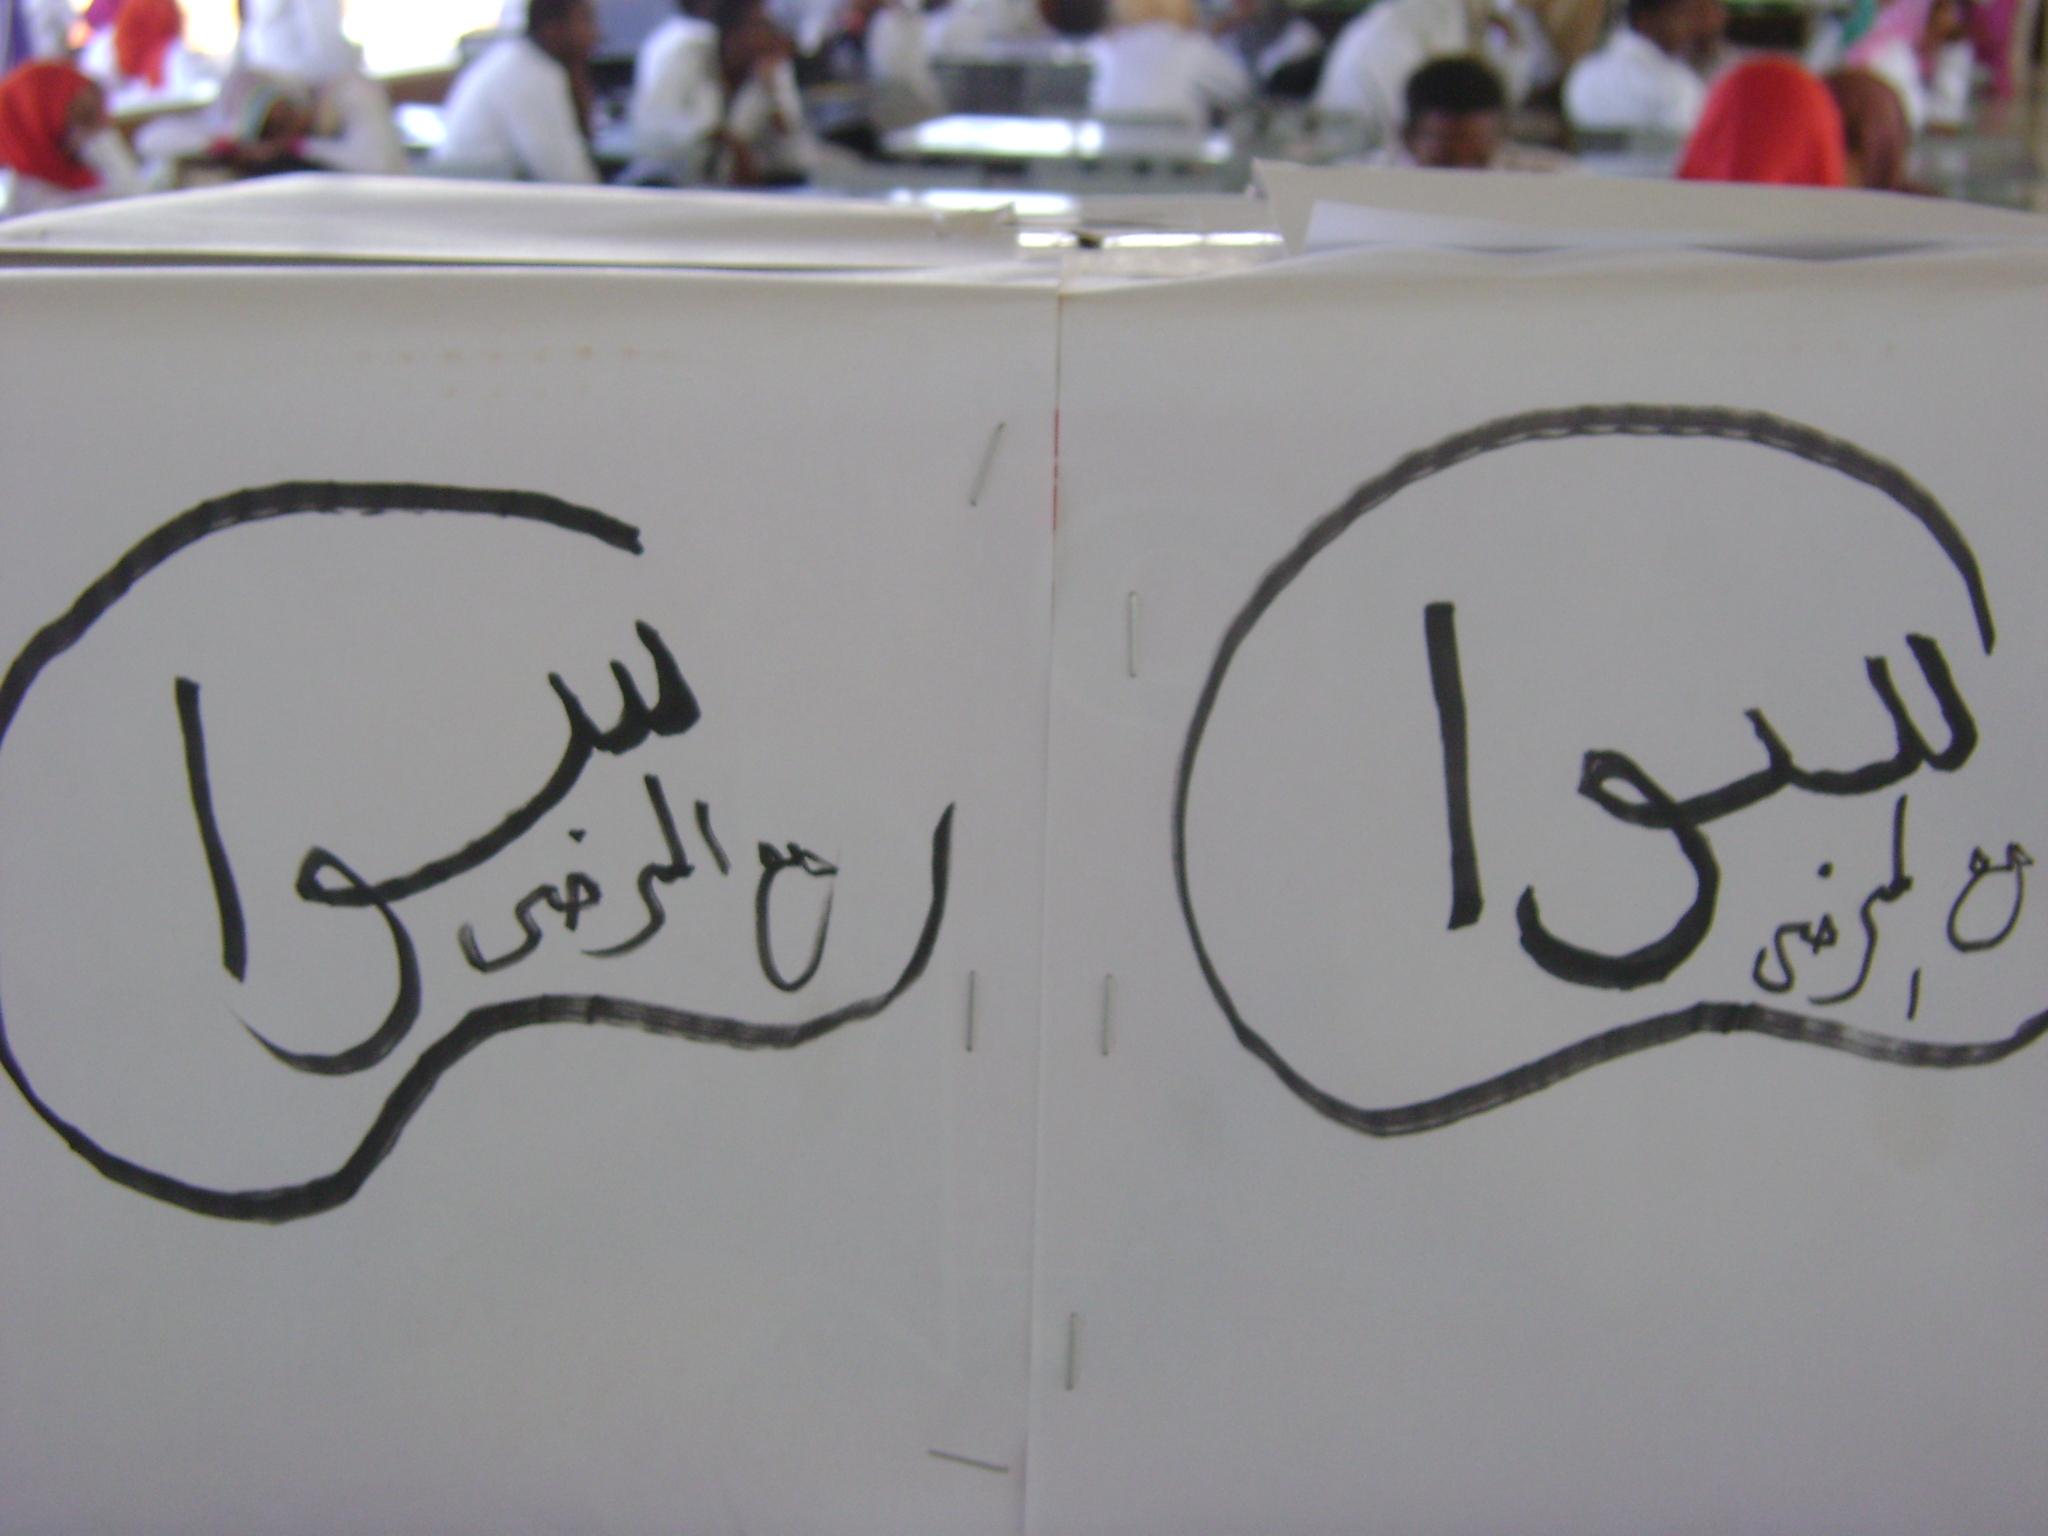 سوا
مع المرضى
سوا
مع المرضى